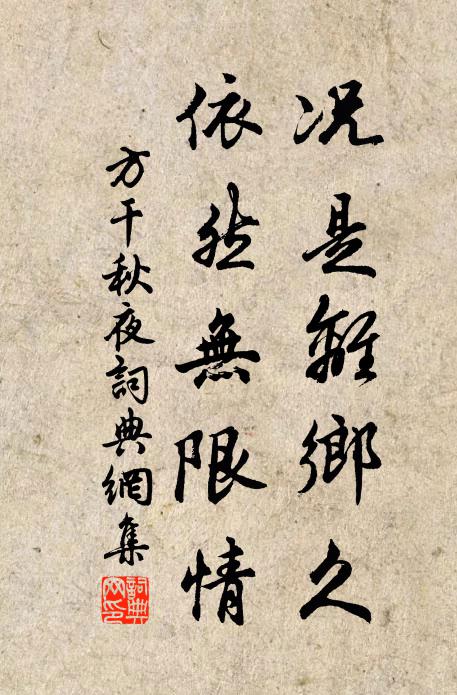 况是離鄉久
依然無限情
方干秋夜詞典網集
詞典
网印